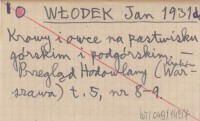 WŁODEK Jan 1931
Krowy i owce na pastwisku
górskim i podgórskim. —
Przegląd Hodowlany (War-
szawa) t. 5, nr 8-9.